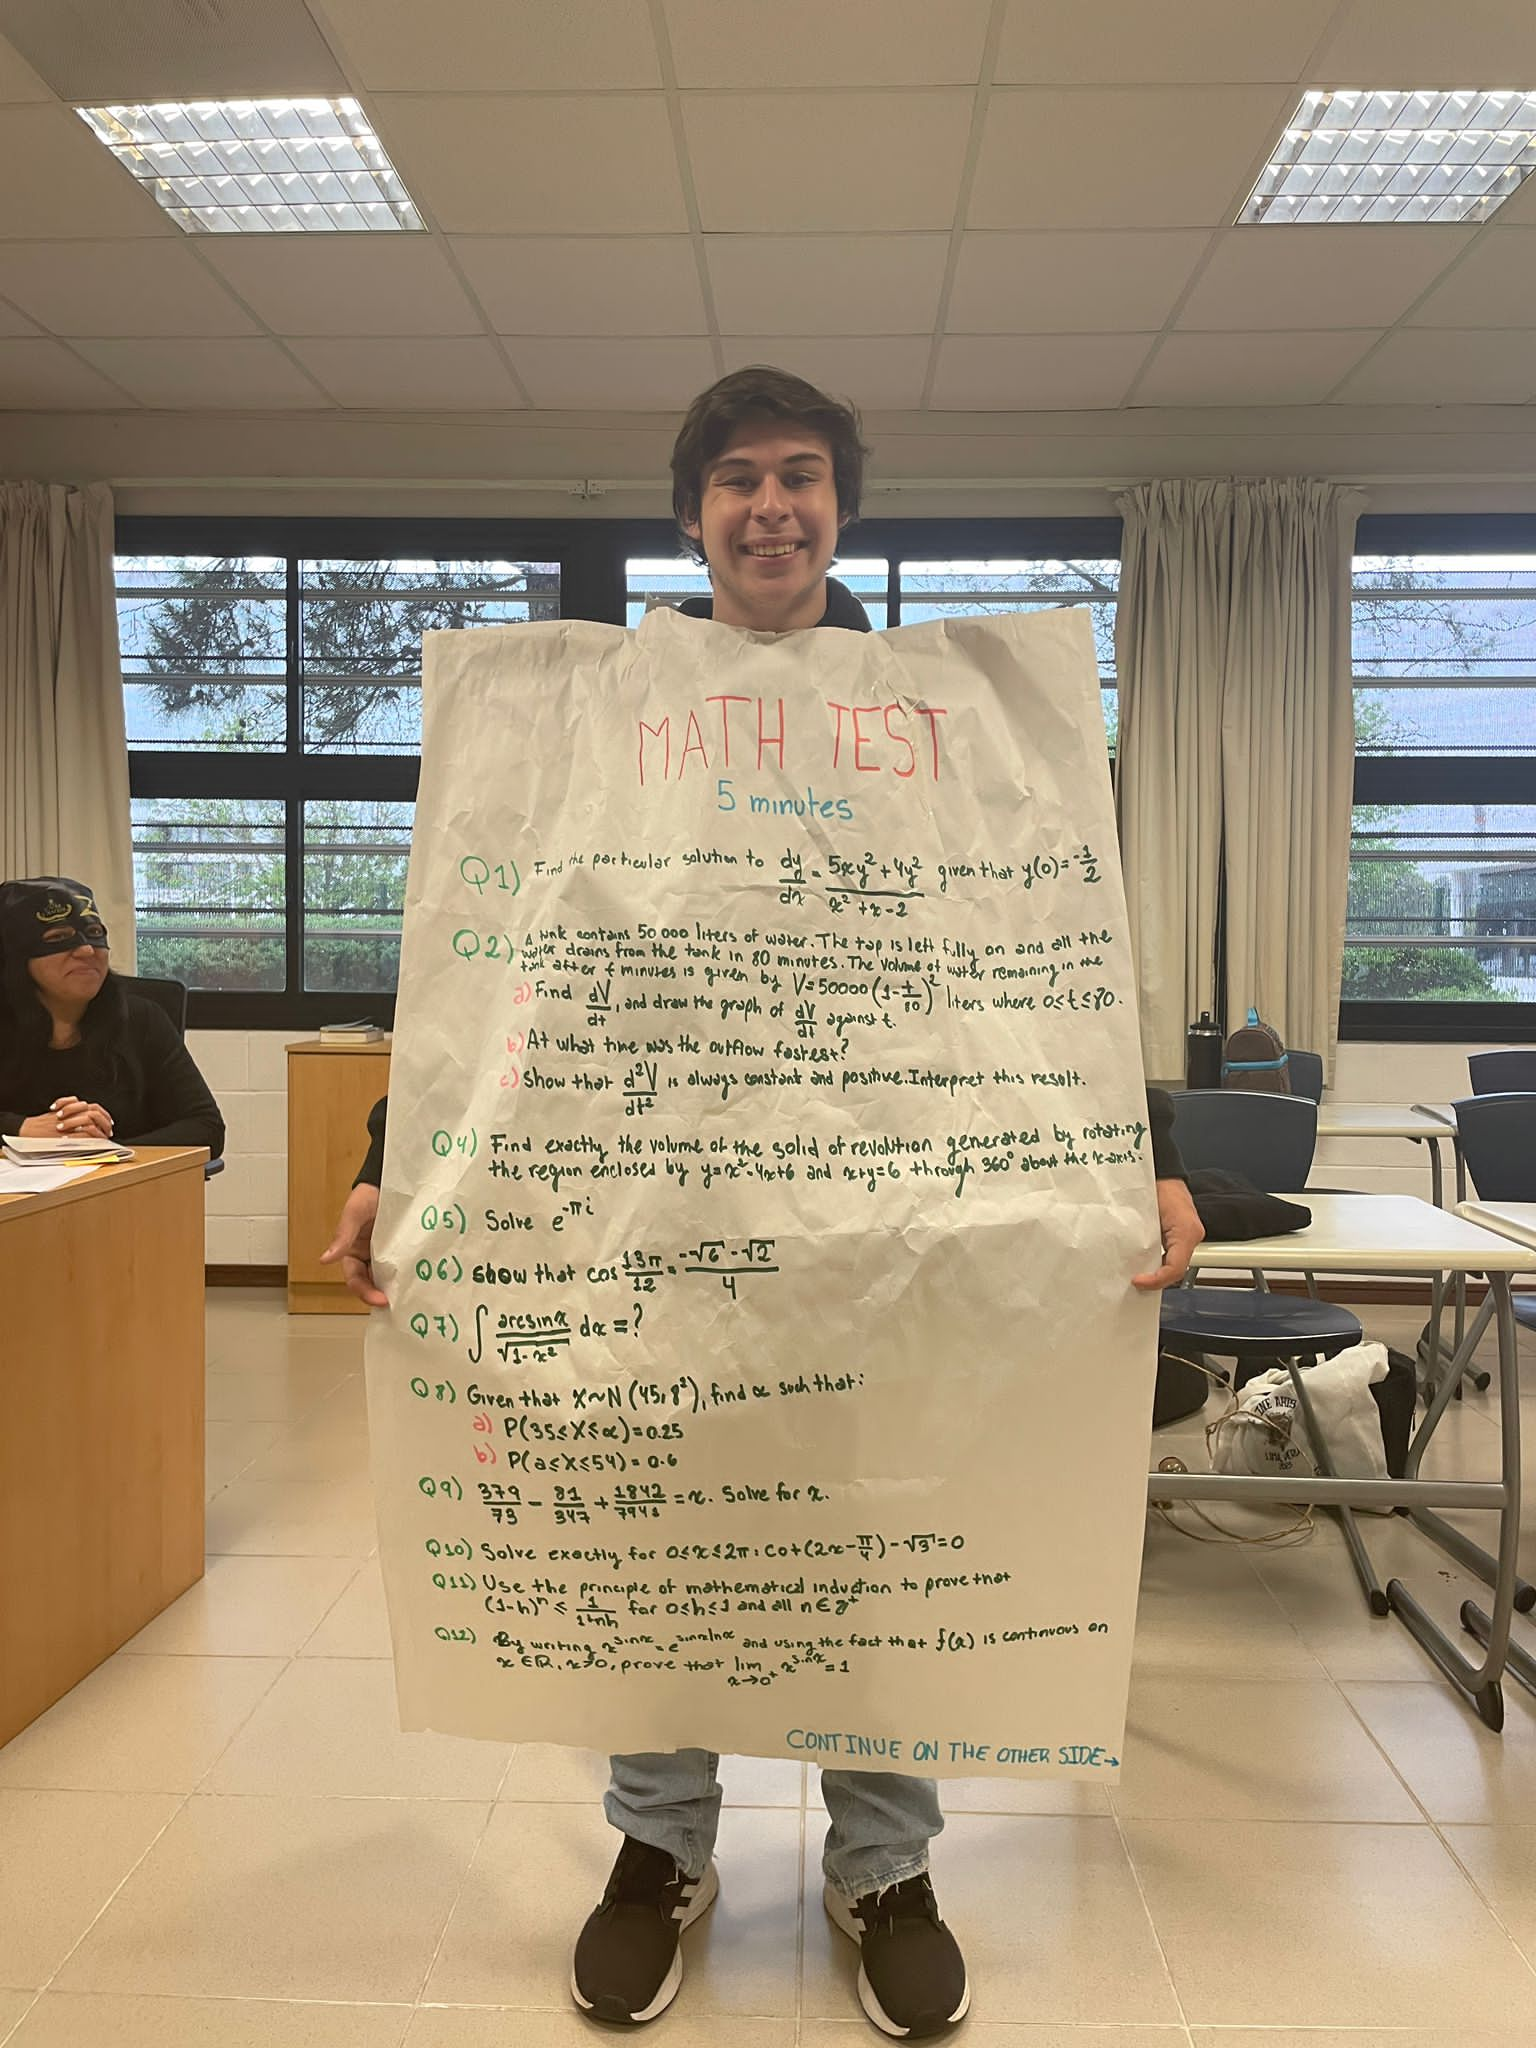 MATH TEST
5 minutes
Q1) Find the particular solution to dy/dx = (5xy² + 4y²)/(x² + x - 2) given that y(0) = -1/2
Q2) A tank contains 50 000 liters of water. The tap is left fully on and all the
water drains from the tank in 80 minutes. The volume of water remaining in the
tank after t minutes is given by V = 50000(1 - t/80)² liters where 0 ≤ t ≤ 80.
a) Find dV/dt, and draw the graph of dV/dt against t.
b) At what time was the outflow fastest?
c) Show that d²V/dt² is always constant and positive. Interpret this result.
Q4) Find exactly the volume of the solid of revolution generated by rotating
the region enclosed by y = x² - 4x + 6 and x + y = 6 through 360° about the x-axis.
Q5) Solve e^(-πi)
Q6) Show that cos 13π/12 = (-√6 - √2)/4
Q7) ∫ arcsinx/√(1 - x²) dx = ?
Q8) Given that X ~ N (45, 8²), find α such that:
a) P(35 ≤ X ≤ α) = 0.25
b) P(a ≤ X ≤ 54) = 0.6
Q9) 379/73 - 81/347 + = x. Solve for x.
Q10) Solve exactly for 0 ≤ x ≤ 2π: cot(2x - π/4) - √3 = 0
Q11) Use the principle of mathematical induction to prove that
(1-h)ⁿ ≤ 1/(1+nh) for 0 ≤ h ≤ 1 and all n ∈ z⁺
Q12) By writing x^sinx = e^(sinxlnx) and using the fact that f(x) is continuous on
x ∈ ℝ, x > 0, prove that lim x→0⁺ x^sinx = 1
CONTINUE ON THE OTHER SIDE→